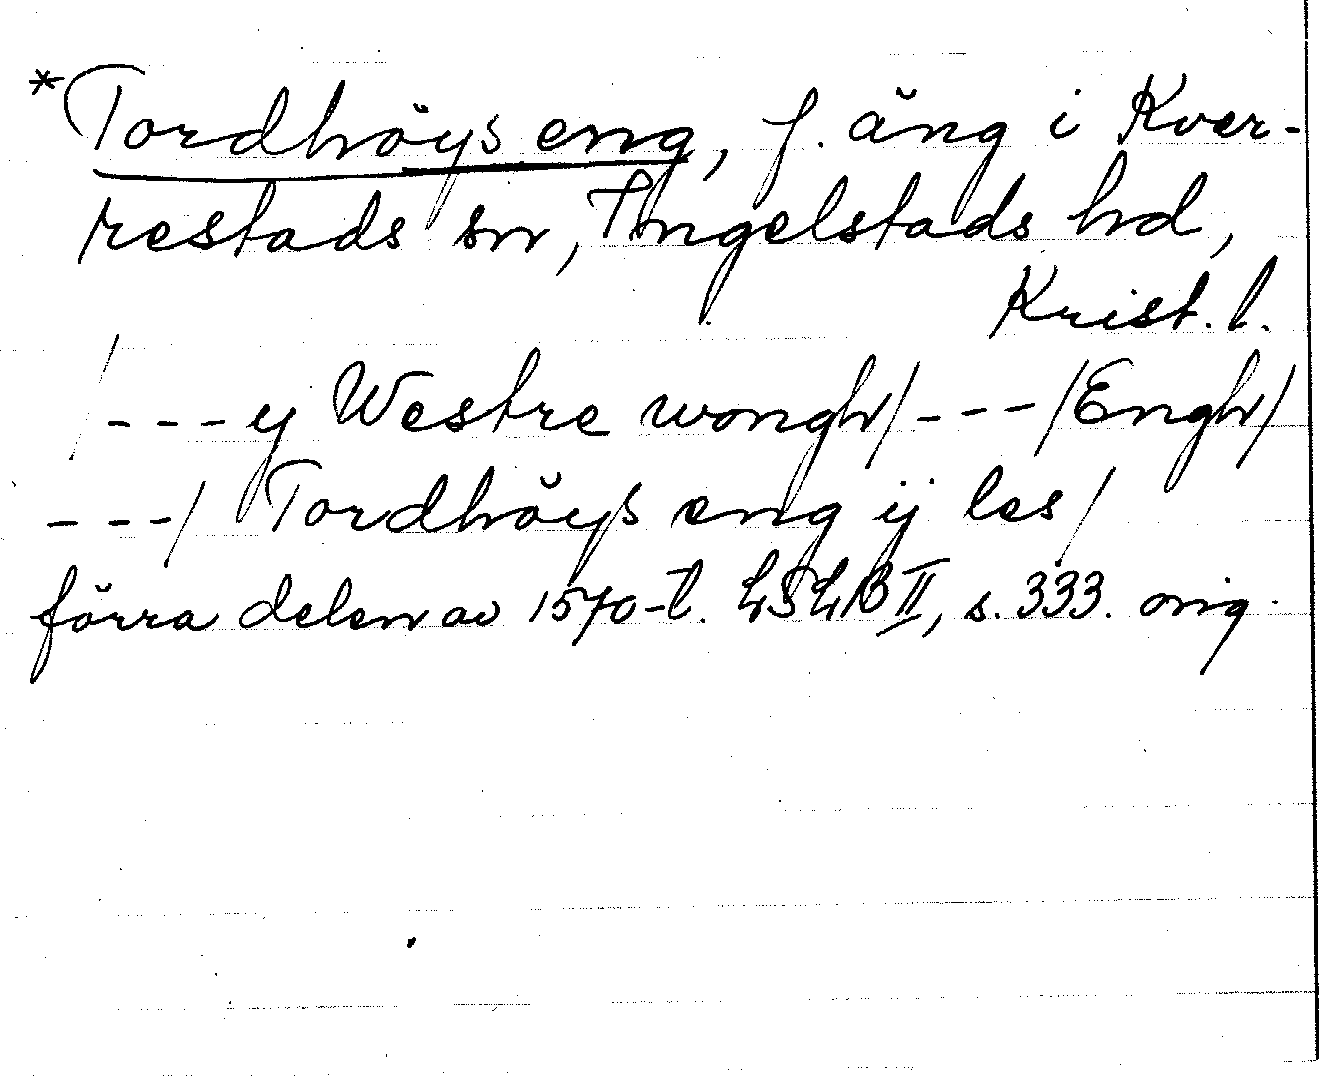 *Tordhöys eng, f. äng i Kver-
restads sn, Ingelstads hd,
Krist. l.
/---y Westre wongh/---/Engh/
---/ Tordhöys eng ij les/
förra delen av 1570-t. LSLB II, s. 333. orig.